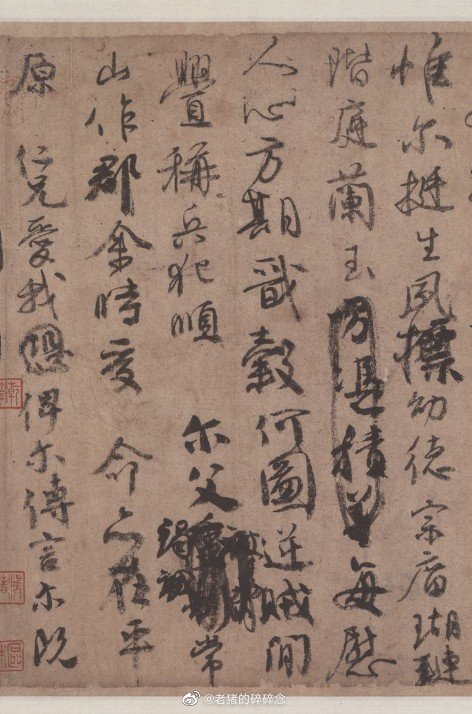 惟尔挺生夙標幼德宗廟瑚璉
階庭蘭玉方憑積善每慰
人心方期戩穀何圖逆賊間
釁稱兵犯順 尔父竭誠常
山作郡余時受 命亦在平
原 仁兄愛我恐俾尔傳言尔既
@老猪的碎碎念